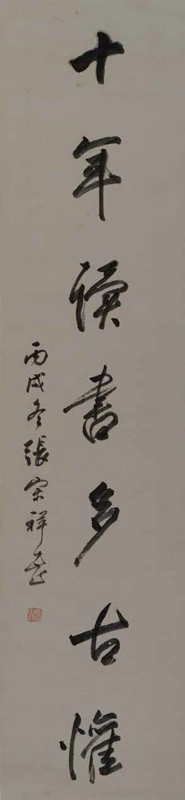 十年讀書多古懽
丙戌冬張宗祥書